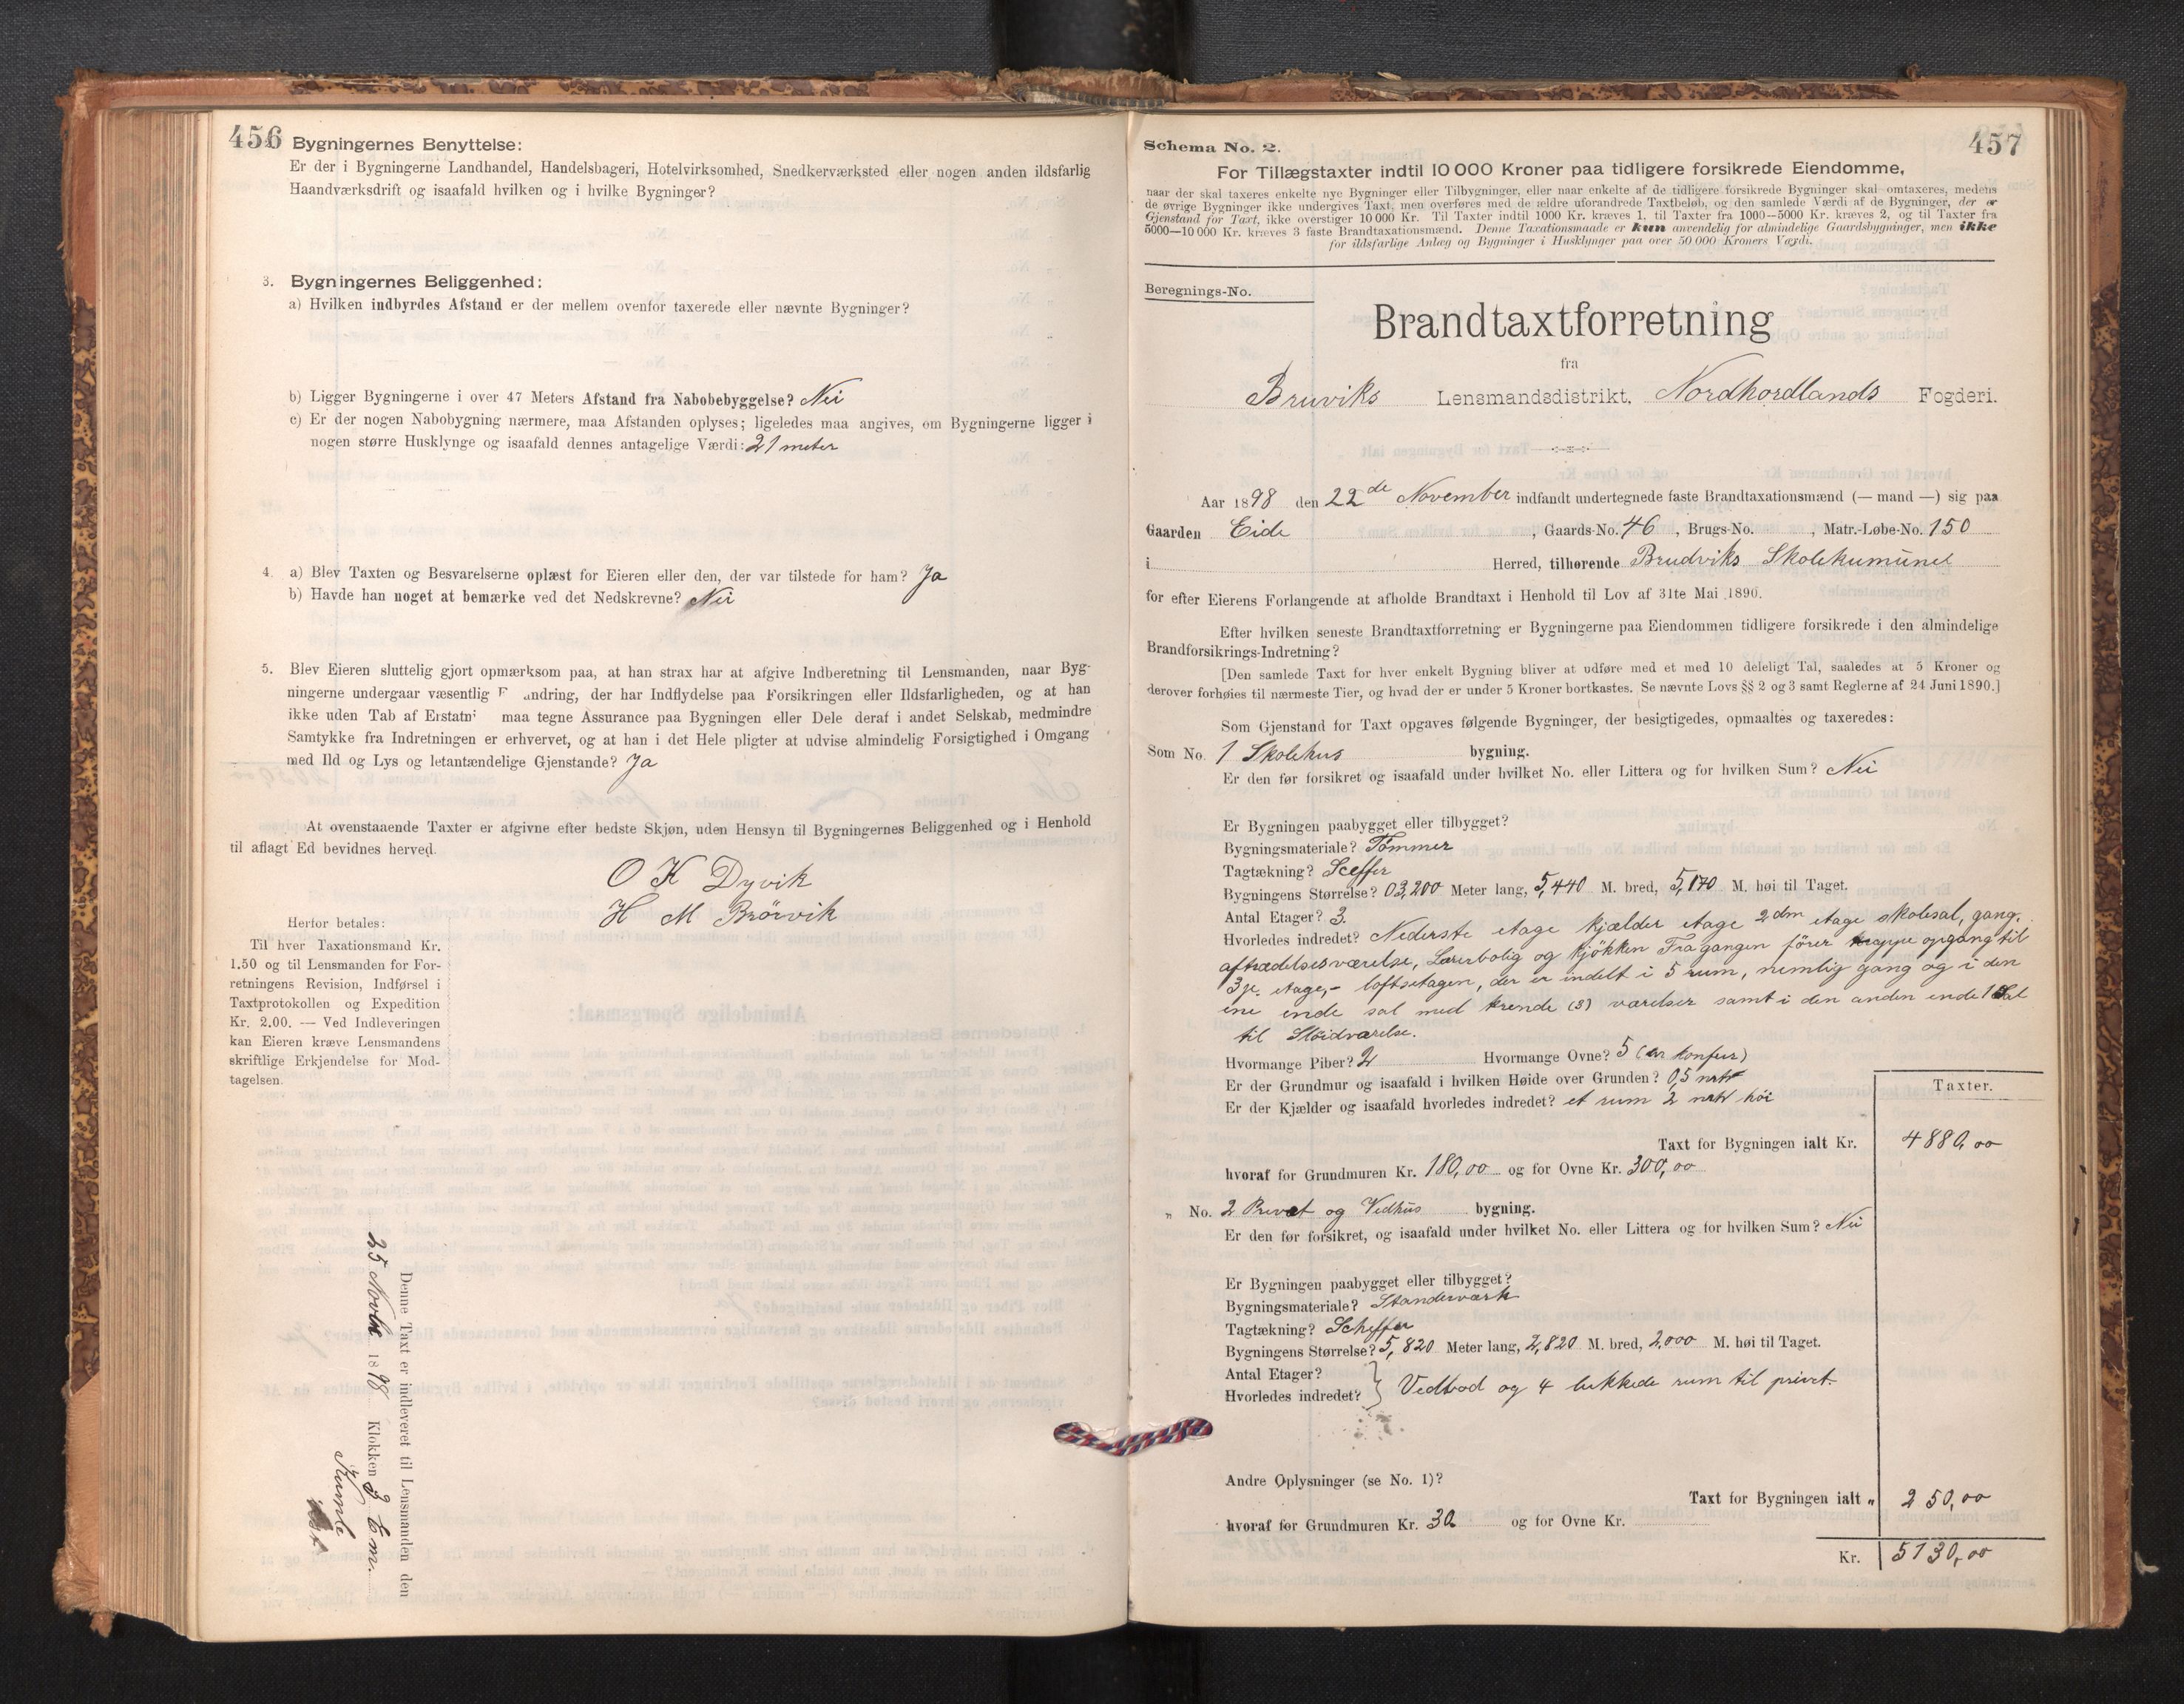 456
Bygningernes Benyttelse:
Er der i Bygningerne Landhandel, Handelsbageri, Hotelvirksomhed, Snedkerværksted eller nogen anden ildsfarlig
Haandværksdrift og isaafald hvilken og i hvilke Bygninger?
3. Bygningernes Beliggenhed:
a) Hvilken indbyrdes Afstand er der mellem ovenfor taxerede eller nævnte Bygninger?
b) Ligger Bygningerne i over 47 Meters Afstand fra Nabobebyggelse? Nei
c) Er der nogen Nabobygning nærmere, maa Afstanden oplyses; ligeledes maa angives, om Bygningerne ligger i
nogen større Husklynge og isaafald dennes antagelige Værdi: 21 meter
4. a) Blev Taxten og Besvarelserne oplæst for Eieren eller den, der var tilstede for ham? Ja
b) Havde han noget at bemærke ved det Nedskrevne? Nei
5. Blev Eieren sluttelig gjort opmærksom paa, at han strax har at afgive Indberetning til Lensmanden, naar Byg-
ningerne undergaar væsentlig F andring, der har Indflydelse paa Forsikringen eller Ildsfarligheden, og at han
ikke uden Tab af Erstatni maa tegne Assurance paa Bygningen eller Dele deraf i andet Selskab, medmindre
Samtykke fra Indretningen er erhvervet, og at han i det Hele pligter at udvise almindelig Forsigtighed i Omgang
med Ild og Lys og letantændelige Gjenstande? Ja
At ovenstaaende Taxter er afgivne efter bedste Skjøn, uden Hensyn til Bygningernes Beliggenhed og i Henhold
til aflagt Ed bevidnes herved.
O K Dyvik
H M Brörvik
Herfor betales:
Til hver Taxationsmand Kr.
1.50 og til Lensmanden for For-
retningens Revision, Indførsel i
Taxtprotokollen og Expedition
Kr. 2.00. — Ved Indleveringen
kan Eieren kræve Lensmandens
skriftlige Erkjendelse for Mod-
tagelsen.
Denne Taxt er indleveret til Lensmanden den
25 Novbr 1898 Klokken 3 E.m.
Kumle
457
Schema No. 2.
For Tillægstaxter indtil 10 000 Kroner paa tidligere forsikrede Eiendomme,
naar der skal taxeres enkelte nye Bygninger eller Tilbygninger, eller naar enkelte af de tidligere forsikrede Bygninger skal omtaxeres, medens
de øvrige Bygninger ikke undergives Taxt, men overføres med de ældre uforandrede Taxtbeløb, og den samlede Værdi af de Bygninger, der er
Gjenstand for Taxt, ikke overstiger 10 000 Kr. Til Taxter indtil 1000 Kr. kræves 1, til Taxter fra 1000—5000 Kr. kræves 2, og til Taxter fra
5000—10 000 Kr. kræves 3 faste Brandtaxationsmænd. Denne Taxationsmaade er kun anvendelig for almindelige Gaardsbygninger, men ikke
for ildsfarlige Anlæg og Bygninger i Husklynger paa over 50 000 Kroners Værdi.
Beregnings-No.
Brandtaxtforretning
fra
Bruviks Lensmandsdistrikt, Nordhordlands Fogderi.
Aar 1898 den 22de November indfandt undertegnede faste Brandtaxationsmænd (— mand —) sig paa
Gaarden Eide , Gaards-No. 46 , Brugs-No. , Matr.-Løbe-No. 150
i Herred, tilhørende Brudviks Skolekumunel
for efter Eierens Forlangende at afholde Brandtaxt i Henhold til Lov af 31te Mai 1890.
Efter hvilken seneste Brandtaxtforretning er Bygningerne paa Eiendommen tidligere forsikrede i den almindelige
Brandforsikrings-Indretning?
[Den samlede Taxt for hver enkelt Bygning bliver at udføre med et med 10 deleligt Tal, saaledes at 5 Kroner og
derover forhøies til nærmeste Tier, og hvad der er under 5 Kroner bortkastes. Se nævnte Lovs §§ 2 og 3 samt Reglerne af 24 Juni 1890.]
Som Gjenstand for Taxt opgaves følgende Bygninger, der besigtigedes, opmaaltes og taxeredes:
Som No. 1 Skolehus bygning.
Er den før forsikret og isaafald under hvilket No. eller Littera og for hvilken Sum? Nei
Er Bygningen paabygget eller tilbygget?
Bygningsmateriale? Tömmer
Tagtækning? Sceffer
Bygningens Størrelse? Meter lang, 5,440 M. bred, 5,170 M. høi til Taget.
Antal Etager? 3.
Hvorledes indredet? Nederste etage kjælder etage 2dm etage skolesal, gang,
aftrædelsesværelse, Lærerbolig og kjökken Fra gangen förer trappe opgang til
3je. etage,- loftsetagen, der er indelt i 5 rum, nemlig gang og i den
ene ende sal med trende (3) værelser samt i den anden ende 1 Sal
til Slöidværelse.
Hvormange Piber? 2 Hvormange Ovne? 5 (
Er der Grundmur og isaafald i hvilken Høide over Grunden? 0,5 mtr
Er der Kjælder og isaafald hvorledes indredet? et rum 2 mtr höi
Taxter.
Taxt for Bygningen ialt Kr. 4880,00
hvoraf for Grundmuren Kr. 180,00 og for Ovne Kr. 300,00
„ No. 2 Privet og Vedhus bygning.
Er den før forsikret, og isaafald under hvilket No. eller Littera og for hvilken Sum? Nei
Er Bygningen paabygget eller tilbygget?
Bygningsmateriale? Standerværk
Tagtækning? Scheffer
Bygningens Størrelse? 5,820 Meter lang, 2,820 M. bred, 2,000 M. høi til Taget.
Antal Etager?
Hvorledes indredet? Vedbod og 4 lukkede rum til privet.
Andre Oplysninger (se No. 1)?
Taxt for Bygningen ialt „ 250,00
hvoraf for Grundmuren Kr. 30 og for Ovne Kr.
Kr. 5130,00